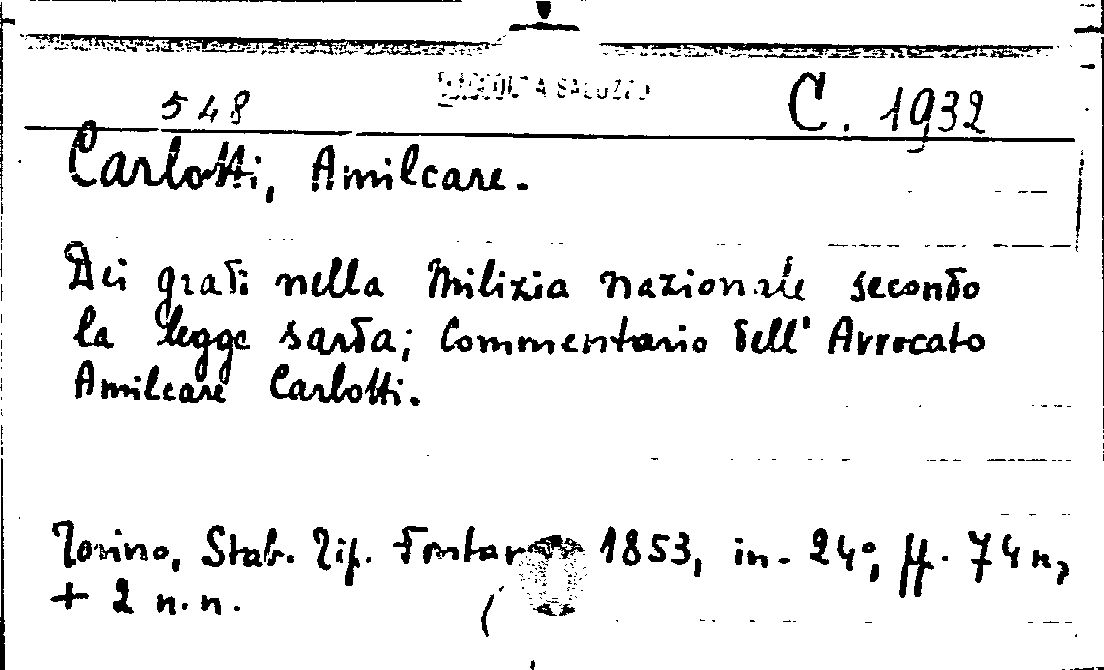 RACCOLTA SALUZZO
548 C. 1932
Carlotti, Amilcare.
Dei gradi nella Milizia nazionale secondo
la legge sarda; Commentario dell' Avvocato
Amilcare Carlotti.
Torino, Stab. Tip. 1853, in-24°, ff. 74 n,
+ 2 n.n.